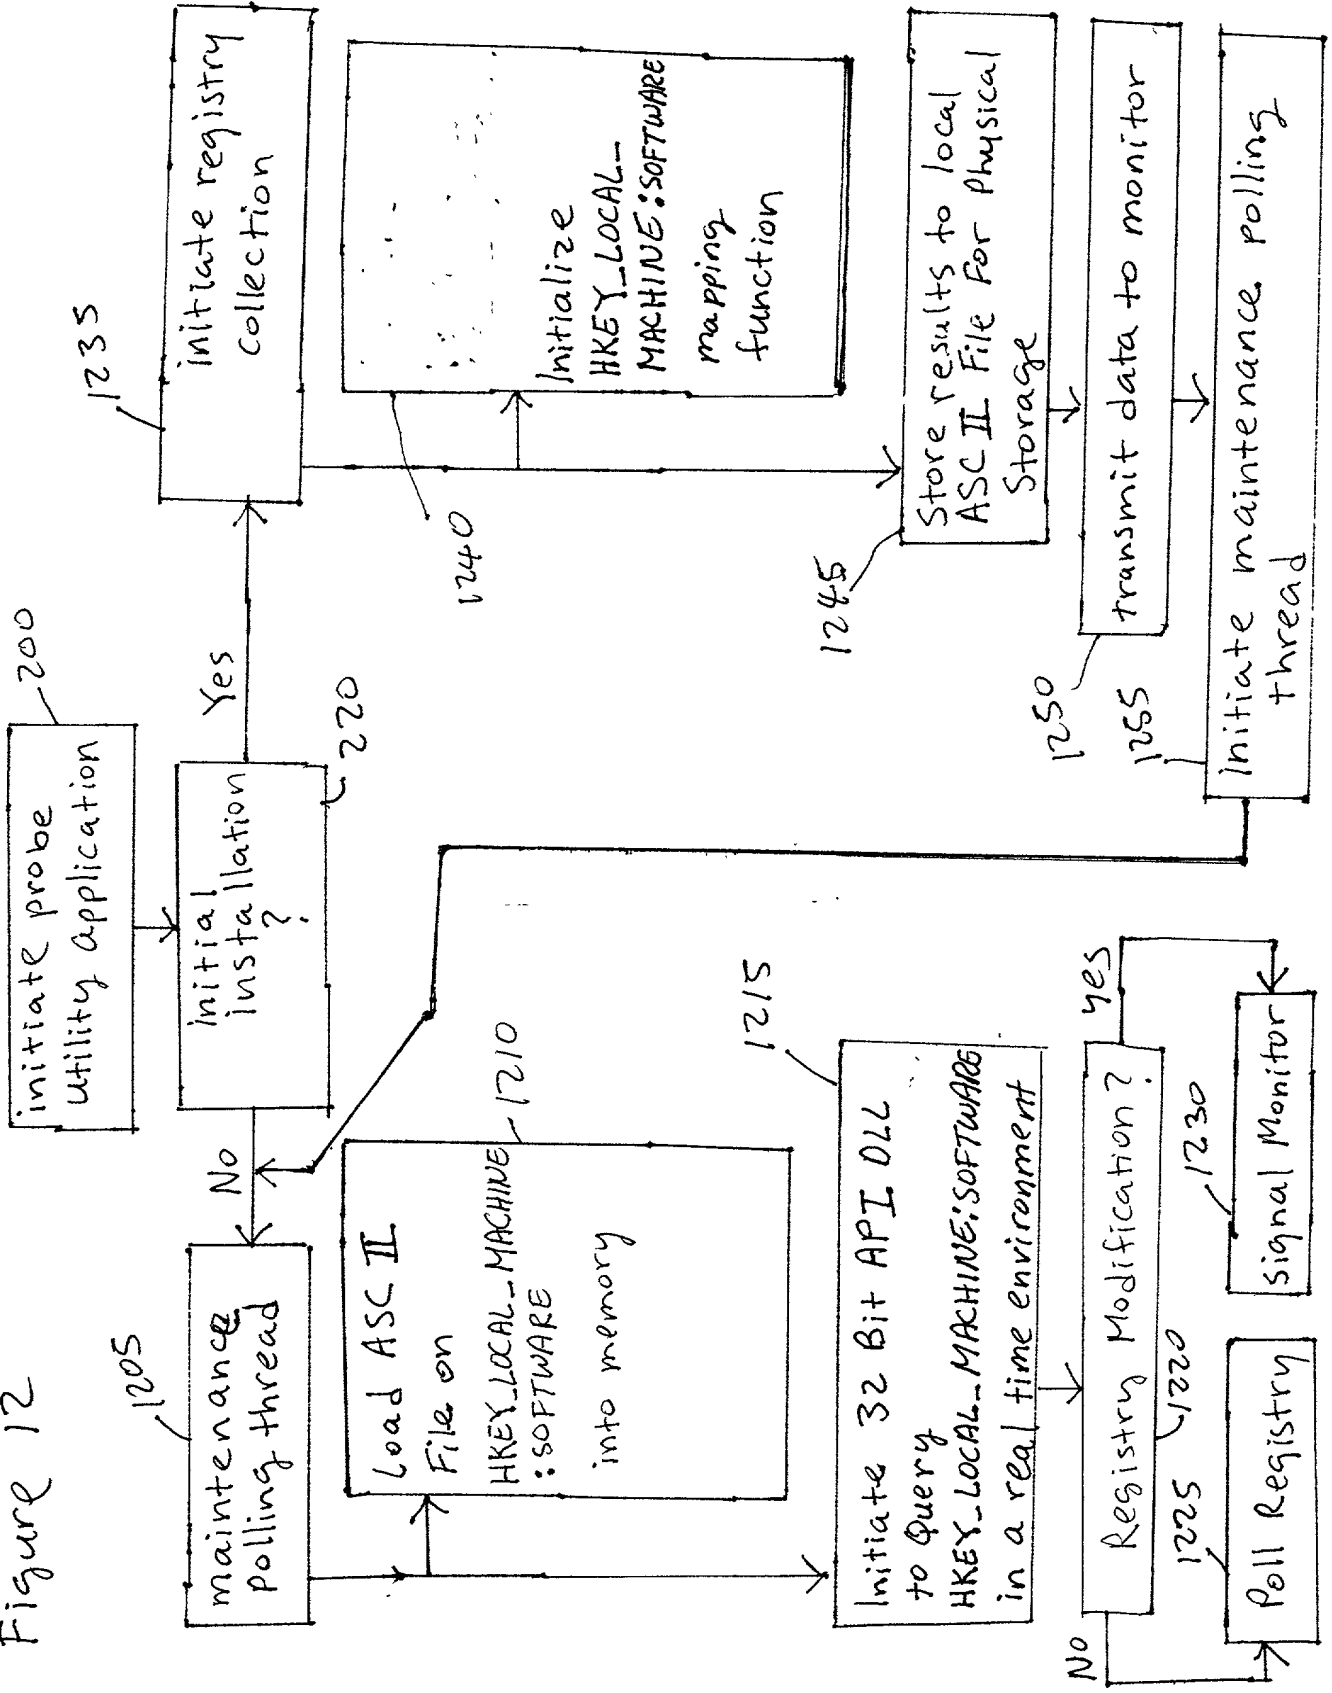 Figure 12
initiate probe
Utility application
200
initial
installation
?
220
No
Yes
maintenance
polling thread
1205
Load ASC II
File on
HKEY_LOCAL_MACHINE
:SOFTWARE
into memory
1210
Initiate 32 Bit API DLL
to Query
HKEY_LOCAL_MACHINE:SOFTWARE
in a real time environment
1215
Registry Modification?
1220
No
yes
Poll Registry
1225
signal Monitor
1230
initiate registry
collection
1235
Initialize
HKEY_LOCAL_
MACHINE:SOFTWARE
mapping
function
1240
Store results to local
ASC II File For Physical
Storage
1245
transmit data to monitor
1250
initiate maintenance polling
thread
1255